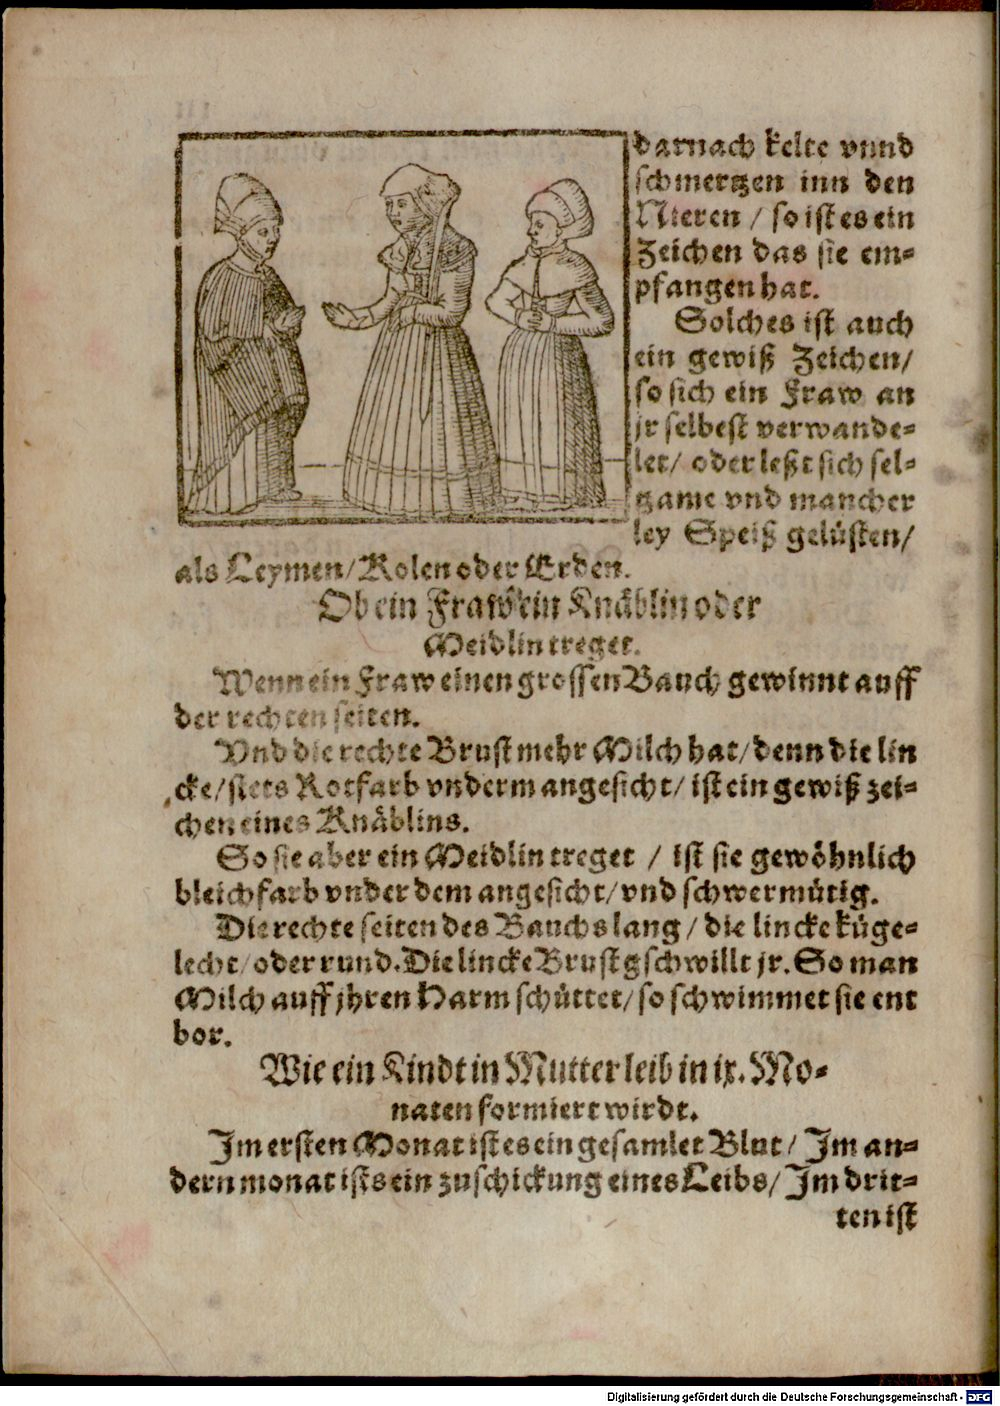 darnach kelte vnnd
schmertzen inn den
Nieren / so ist es ein
Zeichen das sie em-
pfangen hat.
Solches ist auch
ein gewiß Zeichen/
so sich ein Fraw an
jr selbest verwande-
let/ oder leßt sich sel-
tzame vnd mancher
ley Speiß gelüsten/
als Leymen/ Kolen oder Erden.
Ob ein Fraw ein Knäblin oder
Meidlin treget.
Wenn ein Fraw einen grossen Bauch gewinnt auff
der rechten seiten.
Vnd die rechte Brust mehr Milch hat/ denn die lin
cke/ stets Rotfarb vnderm angesicht/ ist ein gewiß zei-
chen eines Knäblins.
So sie aber ein Meidlin treget / ist sie gewöhnlich
bleichfarb vnder dem angesicht/ vnd schwermütig.
Die rechte seiten des Bauchs lang / die lincke küge-
lecht/ oder rund. Die lincke Brust gschwillt jr. So man
Milch auff jhren Harm schüttet/ so schwimmet sie ent
bor.
Wie ein Kindt in Mutter leib in ix. Mo-
naten formiert wirdt.
Im ersten Monat ist es ein gesamlet Blut/ Im an-
dern monat ists ein zuschickung eines Leibs/ Im drit-
ten ist
Digitalisierung gefördert durch die Deutsche Forschungsgemeinschaft - DFG